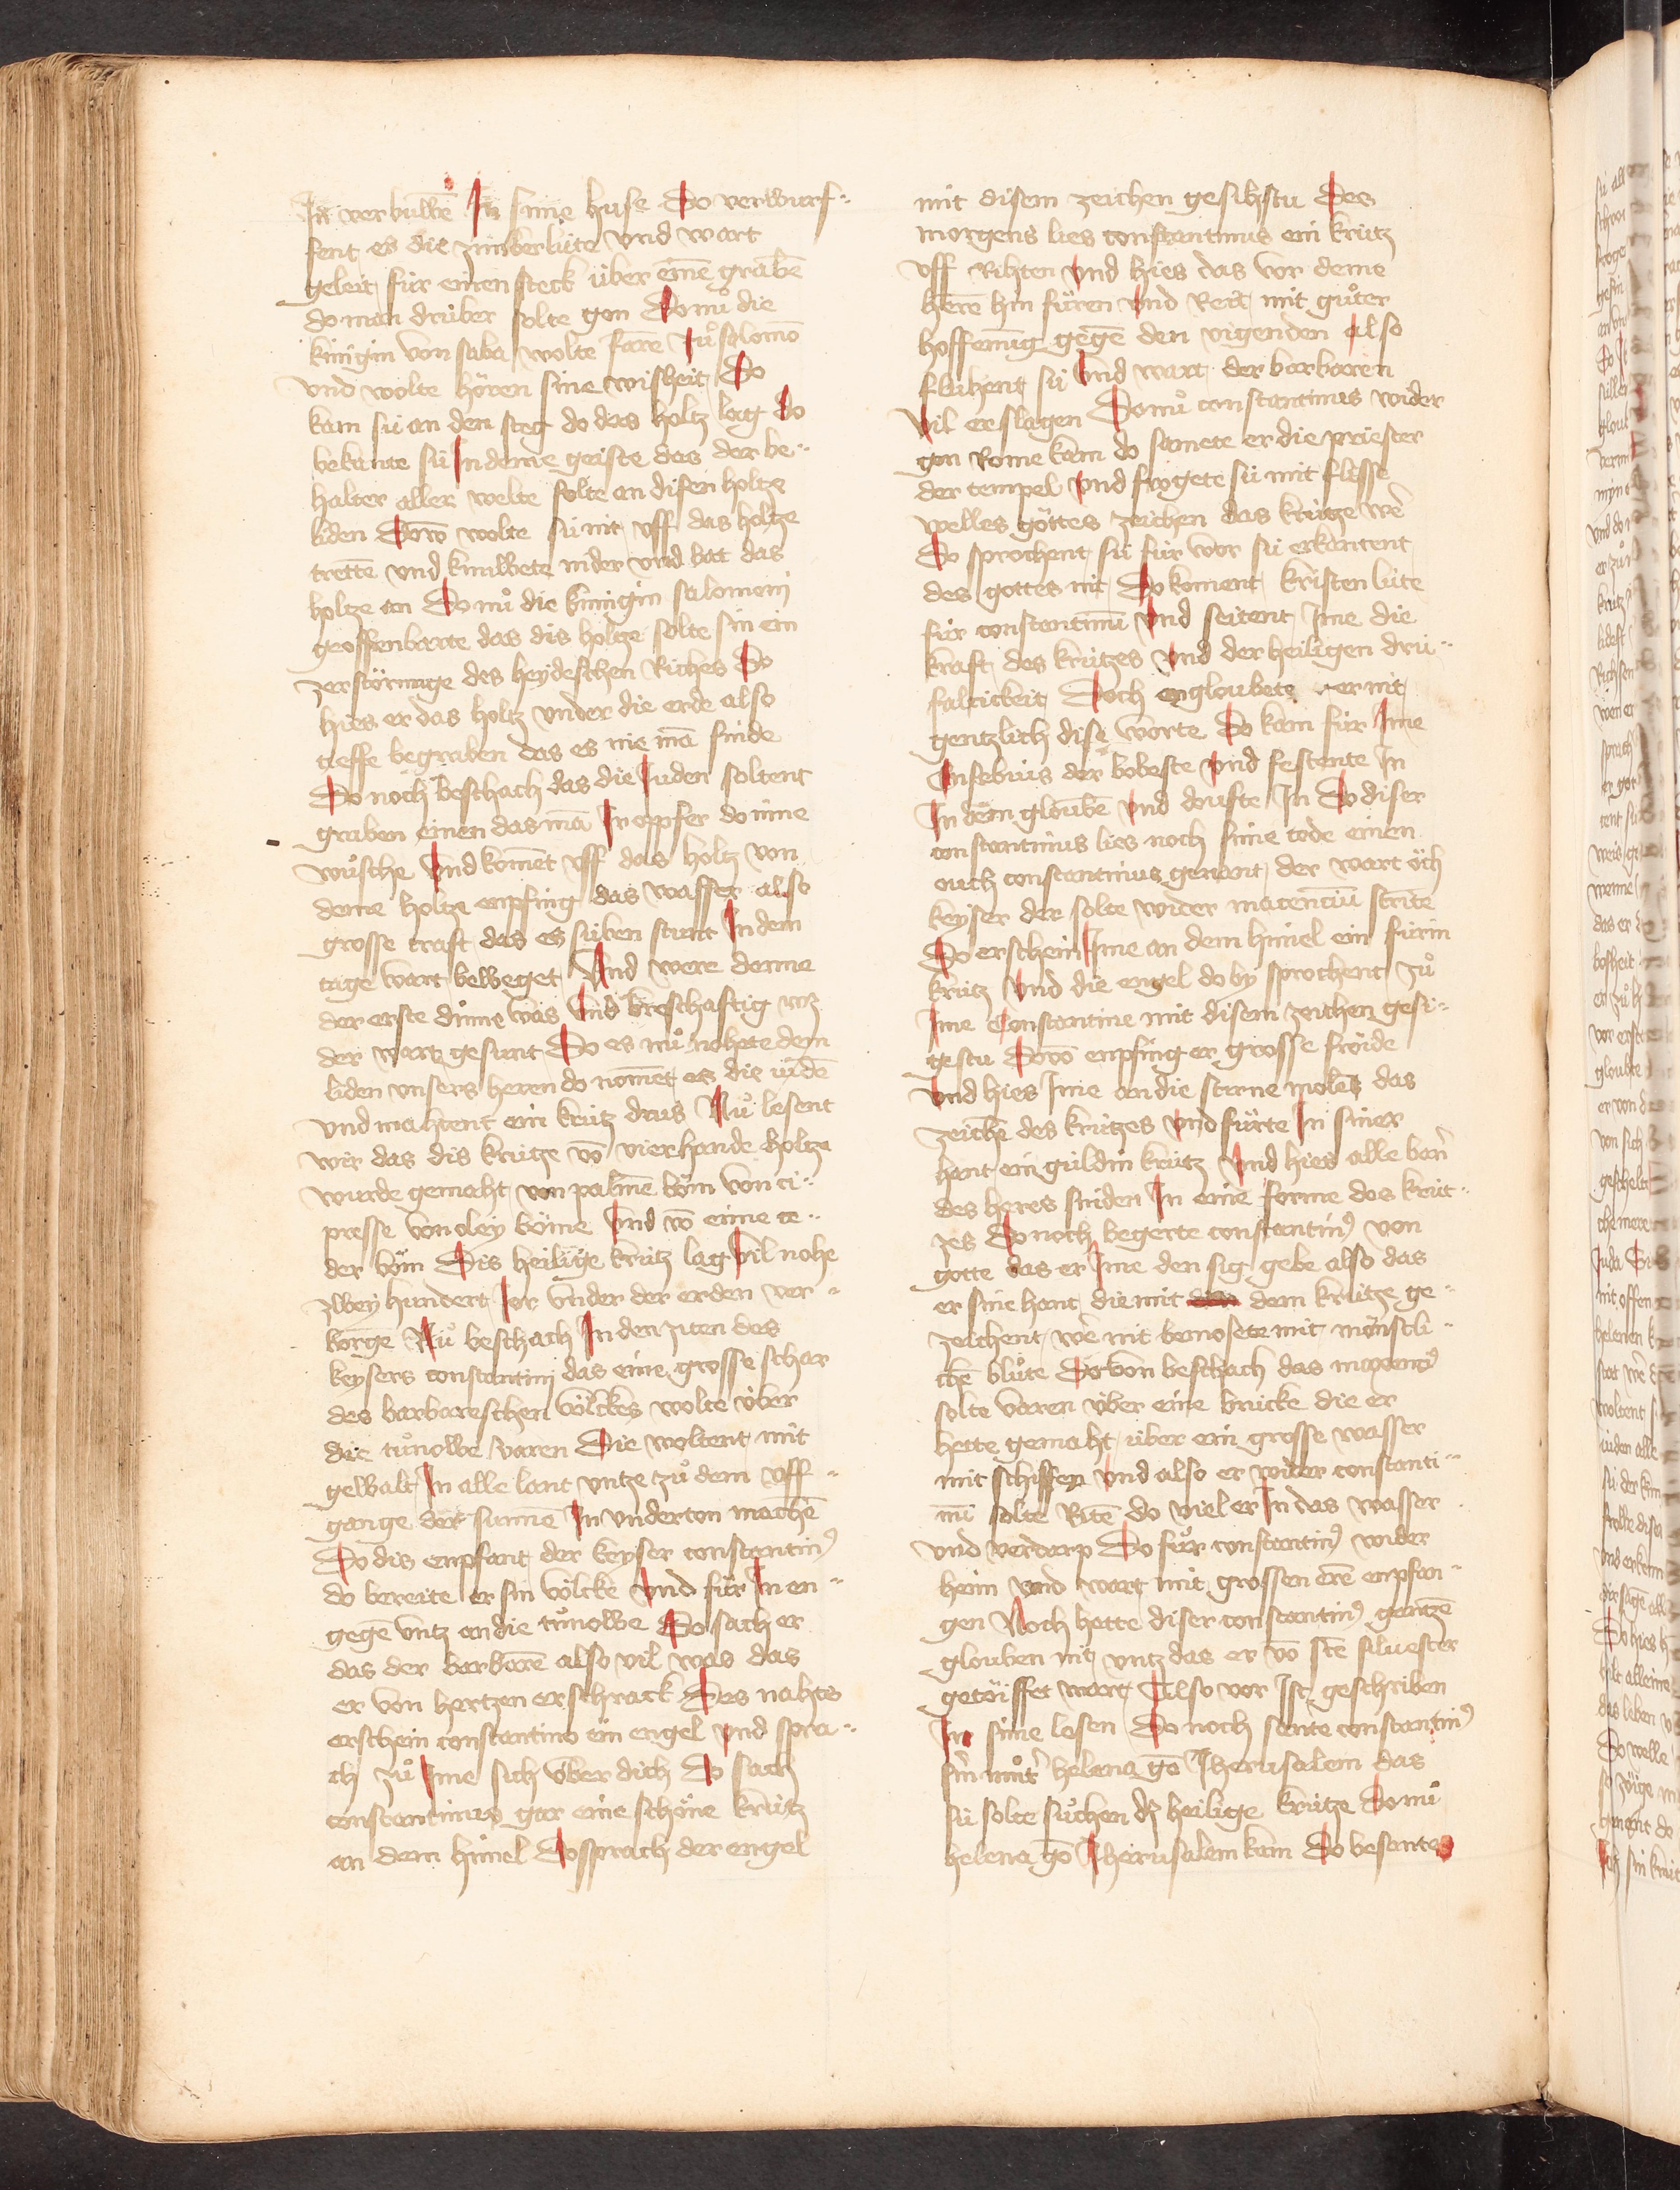 In verbuwē In sime huse Do verwurf-
fent es die zimberlüte vnd wart
geleit für einen steck über einē grabē
do man drüber solte gon Do nuͦ die
künigin von saba wolte farē zuͦ solomō
vnd wolte hören sine wisheit Do
kam sü an den steg do das holtz lag do
bekante sü In deme geiste das der be-
halter aller welte solte an disen holtze
liden Dorō wolte sü nit vff das holtze
trettē vnd knuwete nider vnd bat das
holtze an Do nuͦ die künigin salomoni
geoffenbarte das dis holtze solte sin ein
zerstörunge des heydeschen Riches Do
hies er das holtz vnder die erde also
tieffe begraben das es nie mā finde
Do noch beschach das die Juden soltent
graben einen das mā Ir opfer do inne
wuͦsche Vnd komēt vff das holtz von
deme holtze enpfing das wasser also
grosse craft das es süben stunt In dem
tage wart beweget Vnd were denne
der erste dinne was Vnd breschaftig wz
der wart gesunt Do es nuͦ nohete dem
liden vnsers herren do nomēt es die iudē
vnd mahtent ein krütz drus Nuͦ lesent
wir das dis krütze vō vierhande holtze
wurde gemacht von palmē böm von ci-
presse von oley böme Vnd vō eime ce-
der böm Dis heilige krütz lag vil nohe
zwey hundert Jor vnder der erden ver-
borgē Nuͦ beschach In den ziten des
keysers constantini das eine grosse schar
des barbareschen völckes wolte über
die tuͦnowe varen Die woltent mit
gewalt In alle lant vntze zuͦ dem vff-
gange der sunnē In vnderton machē
Do dis enpfant der keyser constantin⁹
do bereite er sin völcke Vnd für In en-
gegē vntz an die tuͦnowe Do sach er
das der barbarē also vil was das
er von hertzen erschrack Des nahtes
erschein constantino ein engel vnd spra-
ch zuͦ Ime sich über dich Do sach
constantinus gar eine schöne krütz
an dem himel Do sprach der engel
mit disem zeichen gesihstu Des
morgens lies constantinus ein krütz
vff Rihten vnd hies das vor deme
herē hin füren vnd Reit mit guͦter
hoffenūg gegē den vigenden also
fluhent sü Vnd wart der barbaren
vil erslagen Do nuͦ constantinus wider
gon Rome kam do samete er die priester
der tempel vnd frogete sü mit flisse
welles gottes zeichen das krütze wē
Do sprochent sü für wor sü erkantent
des gottes nit Do koment kristen lüte
für constantinū vnd seitent Ime die
kraft des krützes vnd der heiligen drü-
faltickeit Doch engloubete er nit
gentzlich dise worte Do kam für Ime
Eusebius der bobeste vnd festente In
In dem gloubē vnd doufte In Do diser
constantinus lies noch sime tode einen
ouch constantinus genant der wart öch
keyser der solte wider maxenciū stritē
Do erschein Ime an dem himel ein fürin
krütz Vnd die engel do by sprochent zuͦ
Ime Constantine mit disem zeichen gesi-
gestu Dovō enpfing er grosse fröide
vnd hies Ime an die sterne molen das
zeichē des krützes vnd fürte In siner
hant ein guldin krütz Vnd hies alle banˀ
des heres sniden In eine forme des krüt-
zes Do noch begerte constantin⁹ von
gotte das er Ime den sig gebe also das
er sine hant die mit dem krütze ge-
zeichent wē nit bemosete mit mönschli-
chē bluͦte Do von beschach das maxenci⁹
solte varen über eine brücke die er
hette gemaht über ein grosse wasser
mit schiffen Vnd also er wider constanti-
nū solte Ritē do viel er In das wasser
vnd verdarp Do fuͦr constantin⁹ wider
heim vnd wart mit grossen erē enpfan-
gen Noch hette diser constantin⁹ gantzē
glouben nit vntz das er vō stē siluester
getöiffet wart Also vor Ist geschriben
In sime lesen Do noch sente constantin⁹
sin muͦtˀ helena gō Jherusalem das
sü solte suͦchen dz heilige krütze Do nuͦ
helena gō Jherusalem kam Do besante